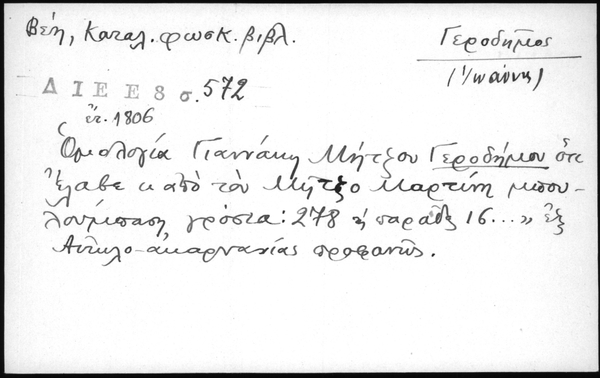 Βέη, Καταλ. φωσκ. βιβλ.
Γεροδήμος
(Ἰωάννης)
Δ Ι Ε Ε 8 σ. 572
ἔτ. 1806
Ὁμολογία Γιαννάκη Μήτζου Γεροδήμου ὅτι
"ἔλαβε κ ἀπὸ τὸν Μήτζο Μαρτίνη μπου-
λούμπαση γρόσια: 278 ἡ παράδες 16..." ἐξ
Αἰτωλο-ἀκαρνανίας προφανῶς.